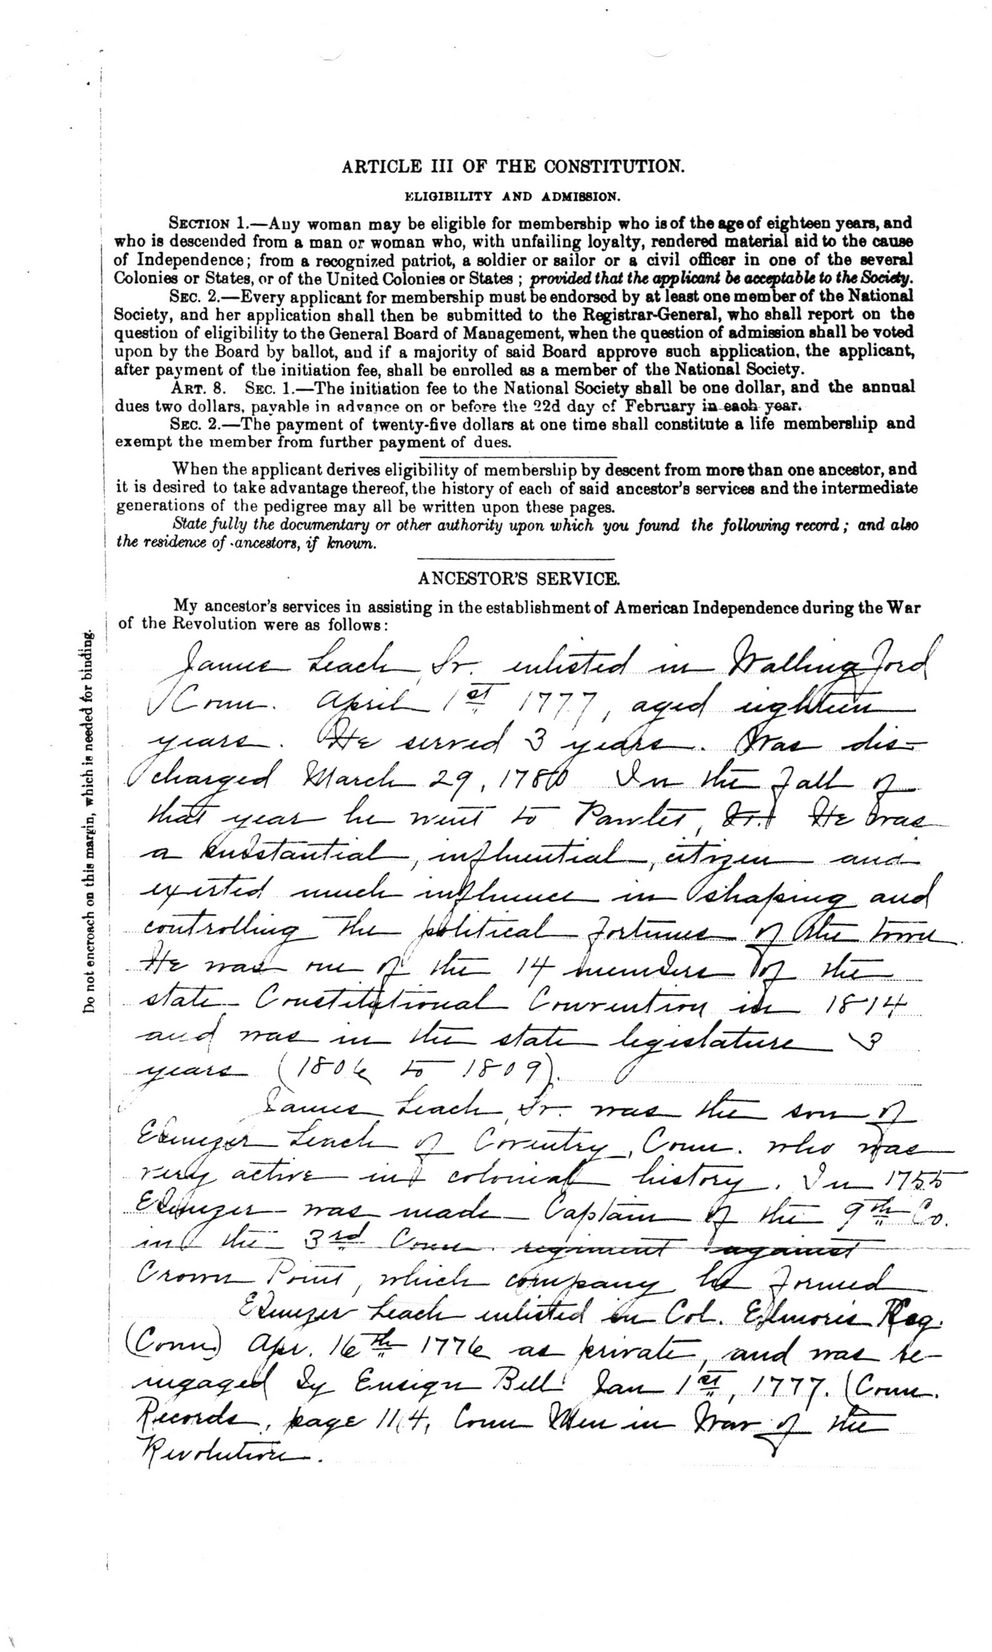 ARTICLE III OF THE CONSTITUTION.
ELIGIBILITY AND ADMISSION.
SECTION 1.—Any woman may be eligible for membership who is of the age of eighteen years, and
who is descended from a man or woman who, with unfailing loyalty, rendered material aid to the cause
of Independence; from a recognized patriot, a soldier or sailor or a civil officer in one of the several
Colonies or States, or of the United Colonies or States; provided that the applicant be acceptable to the Society.
SEC. 2.—Every applicant for membership must be endorsed by at least one member of the National
Society, and her application shall then be submitted to the Registrar-General, who shall report on the
question of eligibility to the General Board of Management, when the question of admission shall be voted
upon by the Board by ballot, and if a majority of said Board approve such application, the applicant,
after payment of the initiation fee, shall be enrolled as a member of the National Society.
ART. 8. SEC. 1.—The initiation fee to the National Society shall be one dollar, and the annual
dues two dollars, payable in advance on or before the 22d day of February in each year.
SEC. 2.—The payment of twenty-five dollars at one time shall constitute a life membership and
exempt the member from further payment of dues.
When the applicant derives eligibility of membership by descent from more than one ancestor, and
it is desired to take advantage thereof, the history of each of said ancestor's services and the intermediate
generations of the pedigree may all be written upon these pages.
State fully the documentary or other authority upon which you found the following record; and also
the residence of ancestors, if known.
ANCESTOR'S SERVICE.
My ancestor's services in assisting in the establishment of American Independence during the War
of the Revolution were as follows:
James Leach, Sr. enlisted in Wallingford
Conn. April 1st 1777, aged eighteen
years. He served 3 years. Was dis-
charged March 29, 1780 In the fall of
that year he went to Pawlet, Vt. He was
a substantial, influential, citizen and
exerted much influence in shaping and
controlling the political fortunes of the town
He was one of the 14 members of the
state Constitutional Convention in 1814
and was in the state legislature 3
years (1806 to 1809).
James Leach, Sr. was the son of
Ebenezer Leach of Coventry, Conn. who was
very active in colonial history. In 1755
Ebenezer was made Captain of the 9th Co.
in the 3rd Conn. regiment against
Crown Point, which company he formed
Ebenezer Leach enlisted in Col. Elmoris Reg.
(Conn.) Apr. 16th 1776 as private, and was re-
engaged by Ensign Bell Jan 1st, 1777. (Conn.
Records, page 114, Conn Men in War of the
Revolution.
Do not encroach on this margin, which is needed for binding.